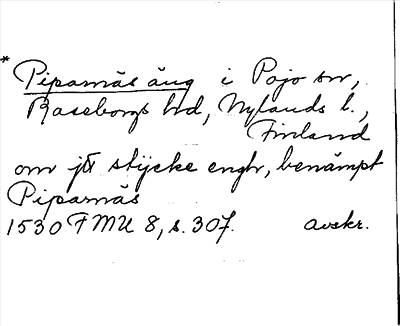 *
Piparnäs äng i Pojo sn,
Raseborgs hd, Nylands l.,
Finland
om jtt stycke engh, benämpt
Piparnäs
1530 FMU 8, s. 307. avskr.